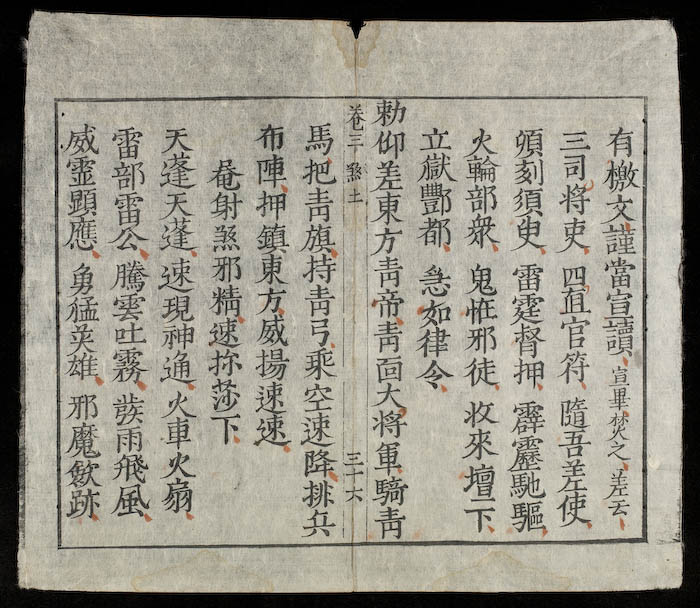 有檄文謹當宣讀宣畢焚之差云
三司将吏四直官符隨吾差使
頃刻須臾雷霆督押霹靂馳驅
火輪部衆鬼恠邪徒收來壇下
立獄酆都急如律令
勅仰差東方靑帝靑面大将軍騎靑
卷三 煞土 三十六
馬把靑旗持靑弓乘空速降排兵
布陣押鎮東方威揚速速
奄射煞邪精速捺莎下
天蓬天蓬速現神通火車火扇
雷部雷公騰雲吐霧蔟雨飛風
威霊顕應勇猛英雄邪魔斂跡